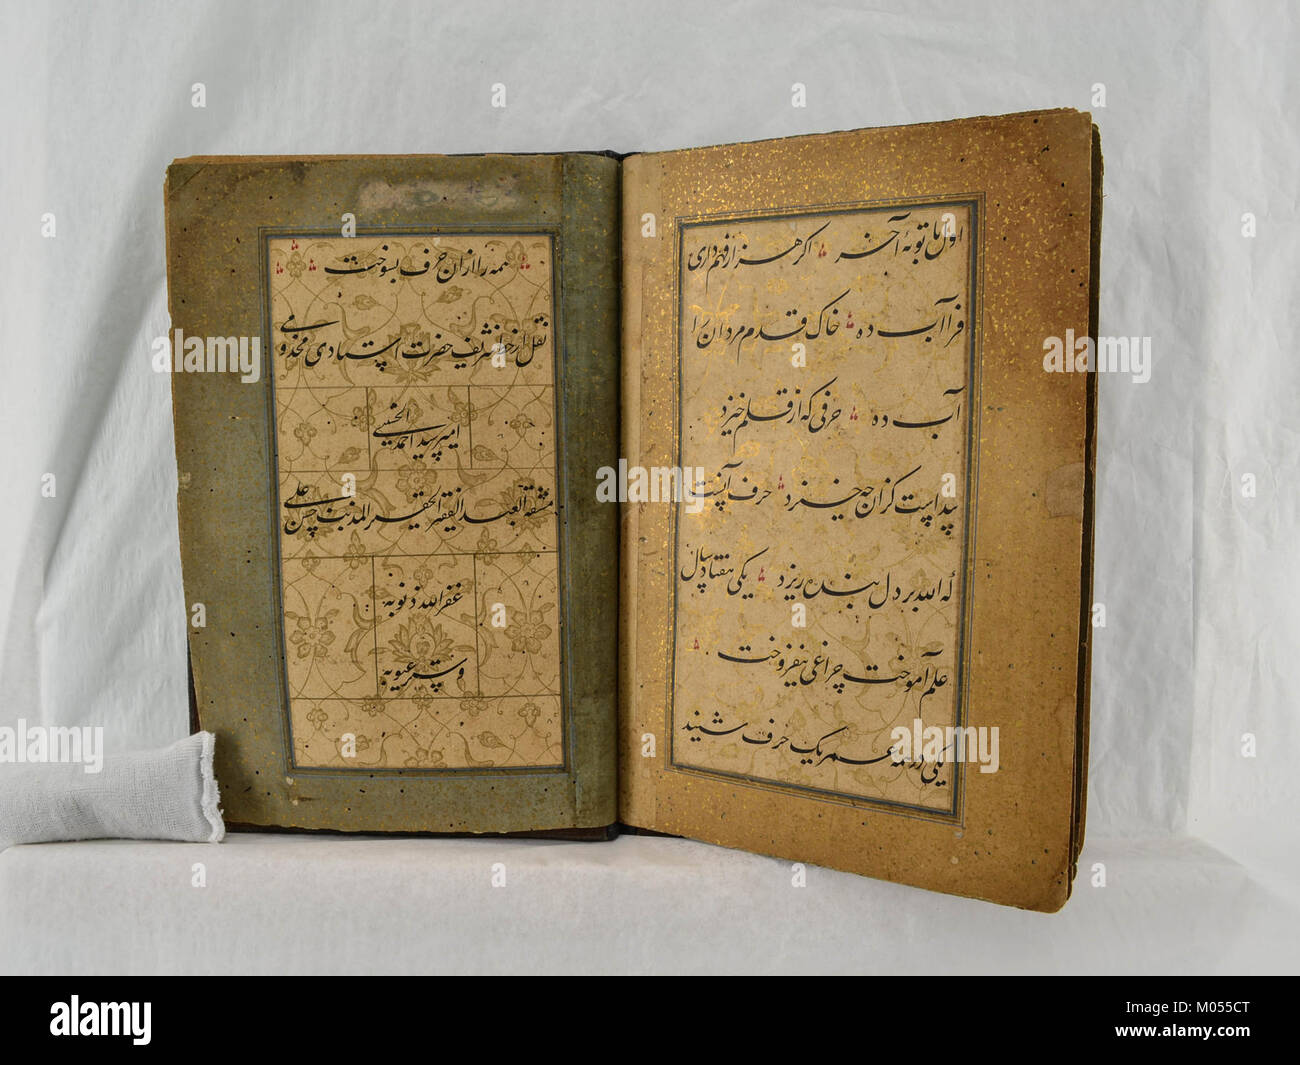 اول ما توبهٔ آخر اگر هزار فهم داری
فرا آب ده خاک قدم مردان را
آب ده حرفی که از قلم خیزد
پیداست کزان چه خیزد حرف آنست
که الله بر دل بنده ریزد یکی هفتاد سال
علم آموخت چراغی نیفروخت
یکی در همه عمر یک حرف شنید
همه را ازان حرف بسوخت
نقل از خط شریف حضرت استادی مخدومی
امیر سید احمد الحسینی
مشقه العبد الفقیر الحقیر المذنب حسن علی
غفر الله ذنوبه
و ستر عیوبه
alamy
alamy
Image ID: M055CT
www.alamy.com